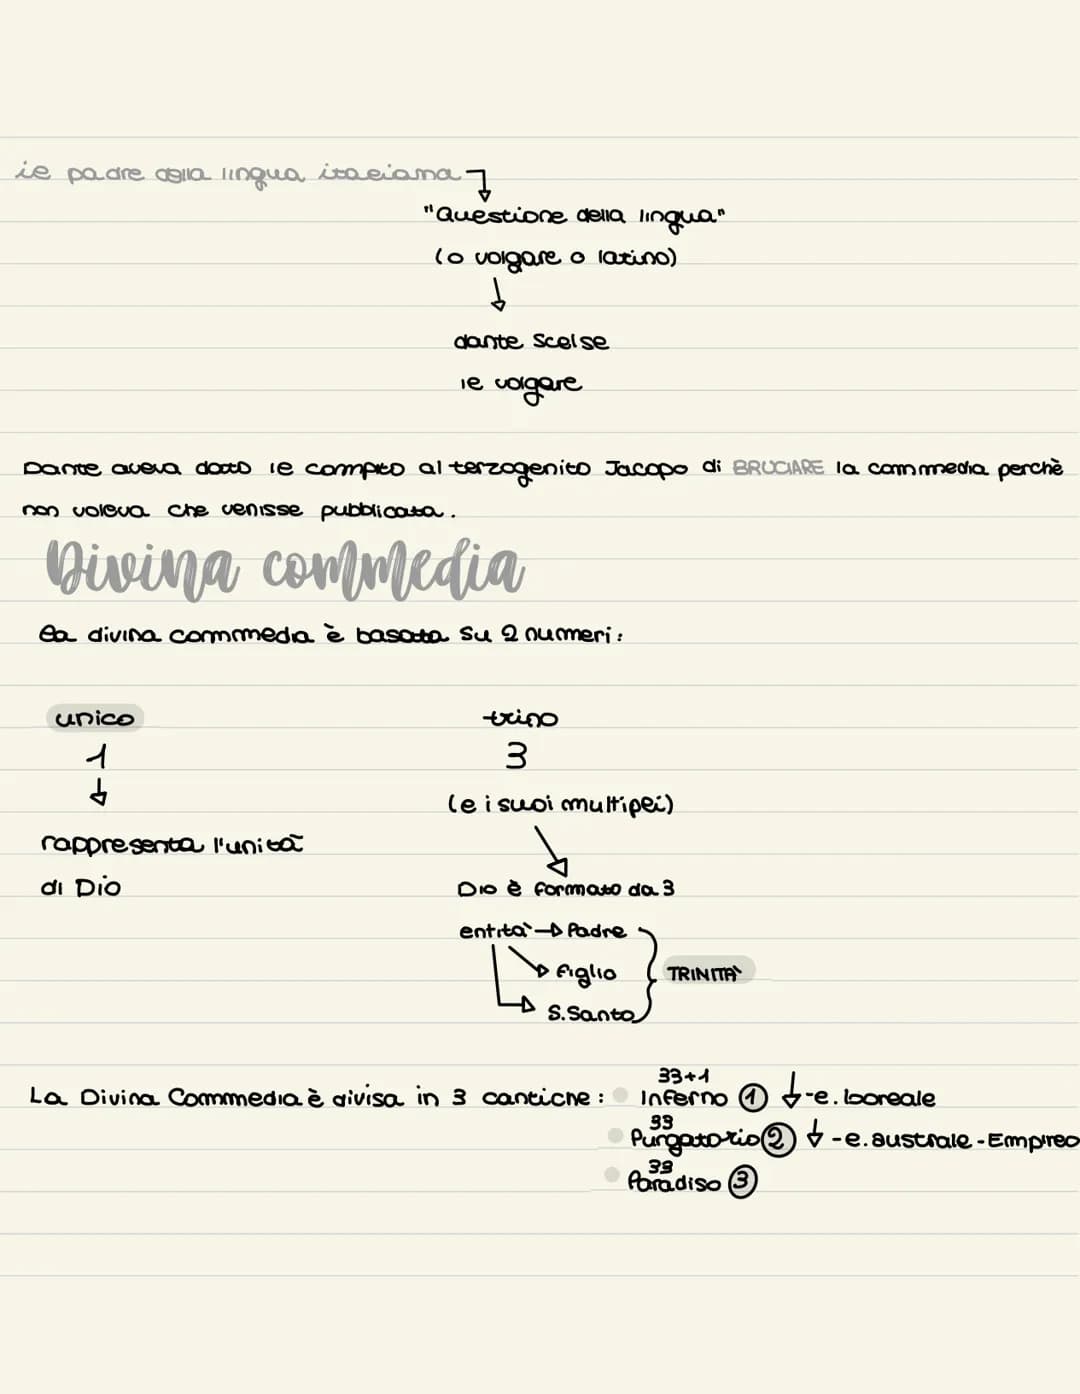 il padre della lingua italiana
"Questione della lingua"
(o volgare o latino)
dante scelse
il volgare
Dante aveva dato il compito al terzogenito Jacopo di BRUCIARE la commedia perchè
non voleva che venisse pubblicata.
Divina commedia
La divina commedia è basata su 2 numeri:
unico trino
1 3
(e i suoi multipli)
rappresenta l'unità
di Dio Dio è formato da 3
entità → Padre
Figlio TRINITÀ
S.Santo
33+1
La Divina Commedia è divisa in 3 cantiche: • Inferno 1 ↓ -e. boreale
33
• Purgatorio 2 ↓ -e. australe - Empireo
33
• Paradiso 3